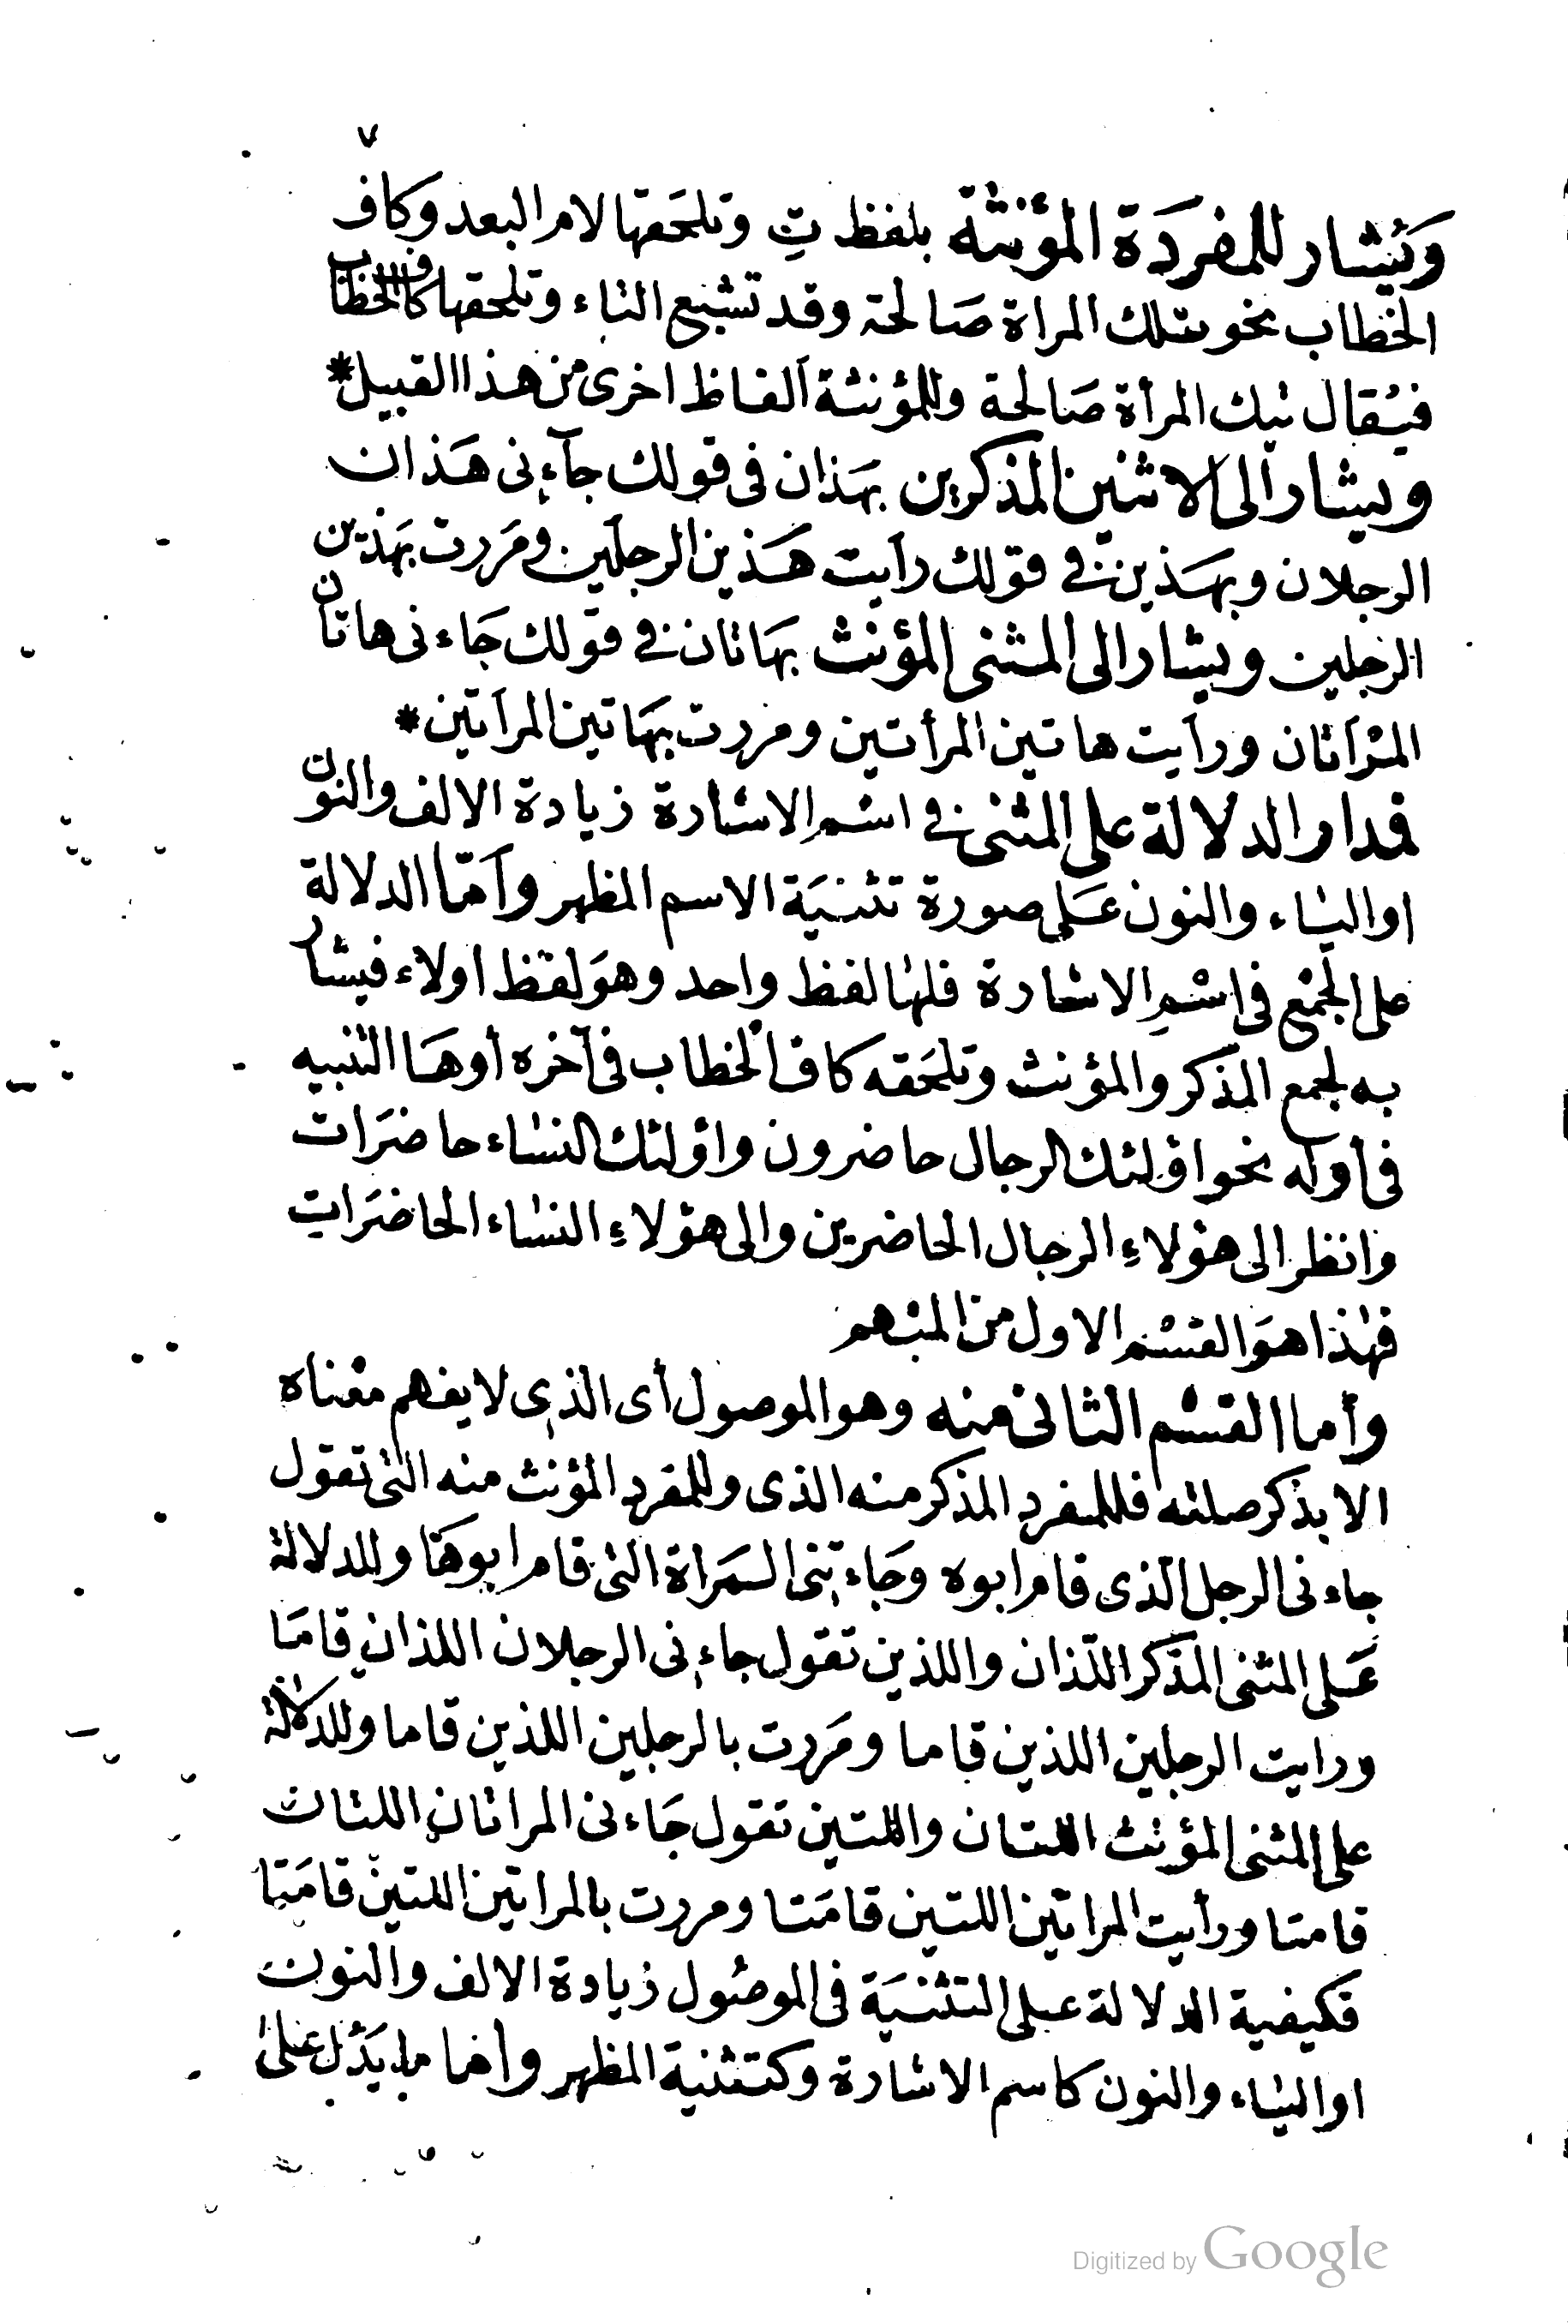 ٧
وَيُشار للمفرَدَة المؤنثة بلفظ تِ وتلحَقها لام البعد وكاف
الخطاب نحو تلك المراة صَالحة وقد تشبع التاء وتلحقها كاف الخطاب
فيُقال تيك المرأة صَالحة وللمؤنثة ألفاظ اخرى من هذا القبيل*
ويشار الى الاثنين المذكرين بهَذان فى قولك جآءنى هَذان
الرجلان وبهَذين في قولك رأيت هَذين الرجلين ومَررت بهَذين
الرجلين ويشار الى المثنى المؤنث بهَاتان في قولك جَاءنى هاتان
المرْأتان ورأيت هاتين المرأتين ومررت بهَاتين المرأتين*
فمدار الدلالة على المثنى في اسْم الاشارة زيادة الالف والنون
او الياء والنون عَلى صورة تثنيَة الاسم المظهر وأمّا الدلالة
على الجمْع فى اسْمِ الاشارة فلها لفظ واحد وهوَ لفظ اولاء فيشار
به لجمع المذكر والمؤنث وتلحَقه كاف الخطاب فى آخره أو هَا التنبيه
فى أوله نحو اؤلئك الرجال حاضرون واؤلئك النسَاء حاضرَات
وانظر الى هؤلاءِ الرجال الحاضرين والى هؤلاءِ النسَاء الحاضرَاتِ
فهٰذا هوَ القسْم الاول من المبْهم
وأما القسْم الثانى منه وهو الموصول أى الذى لا يفهم معْناه
الا بذكر صلته فللمفردِ المذكر منه الذى وللمفردِ المؤنث منه التى تقول
جاءنى الرجل الذى قام ابوه وجَاءتنى المَراة التى قام ابوهَا وللدلالة
عَلى المثنى المذكر اللّذان واللذين تقول جاءنى الرجلان اللذان قامَا
ورايت الرجلين اللذين قاما ومَررت بالرجلين اللذين قاما وللدلالة
على المثنى المؤنث اللتان واللتين تقول جَاءنى المراتان اللتان
قامتا ورأيت المراتين اللتين قامَتا ومررت بالمراتين اللتين قامَتا
فكيفية الدلالة على التثنيَة فى الموصُول زيادة الالف والنون
او الياء والنون كاسم الاشارة وكتثنية المظهر وأما ما يَدُل على
Digitized by Google